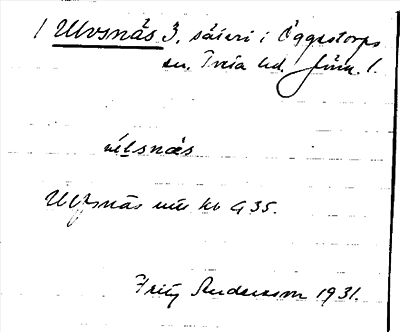 1 Ulvsnäs 3, säteri i Öggestorps
sn. Tveta hd. Jönk. l.
ulsnäs
Ulfsnäs
Fritz Andersson 1931.